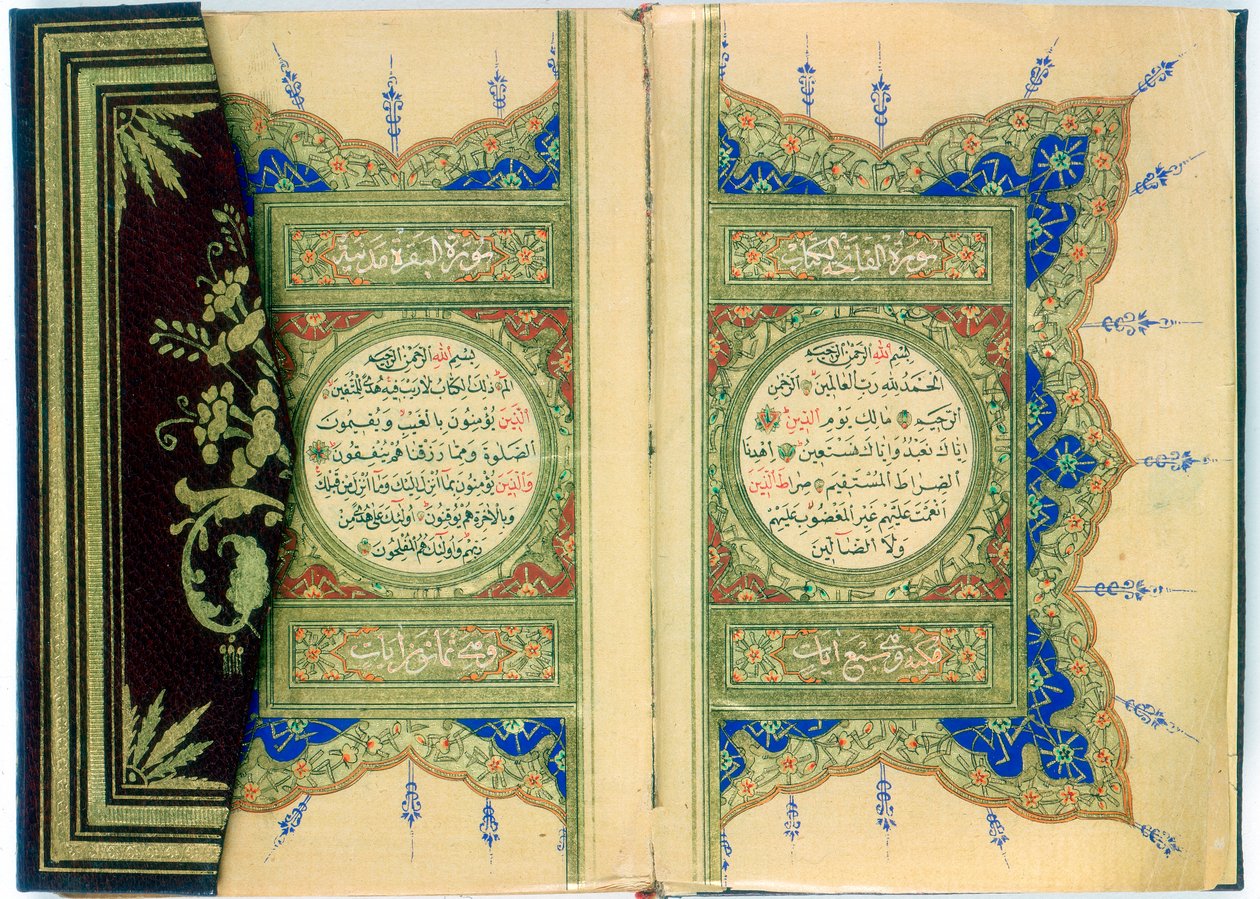 سورة الفاتحة الكتاب
بسم الله الرحمن الرحيم
الحمد لله رب العالمين الرحمن
الرحيم مالك يوم الدين
اياك نعبد واياك نستعين اهدنا
الصراط المستقيم صراط الذين
انعمت عليهم غير المغضوب عليهم
ولا الضالين
مكية وهي سبع ايات
سورة البقرة مدنية
بسم الله الرحمن الرحيم
الم ذلك الكتاب لا ريب فيه هدى للمتقين
الذين يؤمنون بالغيب ويقيمون
الصلوة ومما رزقناهم ينفقون
والذين يؤمنون بما انزل اليك وما انزل من قبلك
وبالاخرة هم يوقنون اولئك على هدى من
ربهم واولئك هم المفلحون
وهي ايات